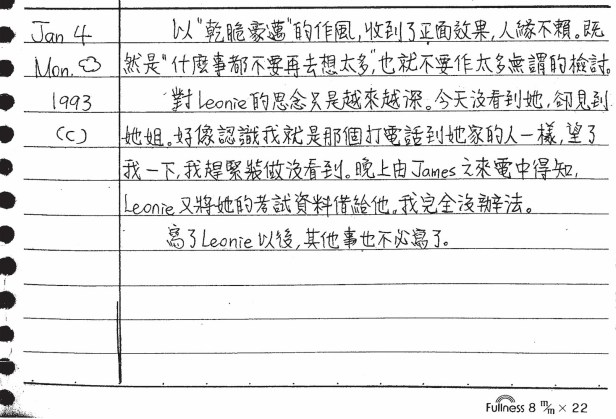 Jan 4 以"乾脆豪邁"的作風,收到了正面效果,人緣不賴。既
Mon. 然是"什麼事都不要再去想太多",也就不要作太多無謂的檢討.
1993 對Leonie的思念只是越來越深。今天沒看到她,卻見到
(c) 她姐。好像認識我就是那個打電話到她家的人一樣,望了
我一下,我趕緊裝做沒看到。晚上由James之來電中得知,
Leonie又將她的考試資料借給他。我完全沒辦法。
寫了Leonie以後,其他事也不必寫了。
Fullness 8 m/m × 22